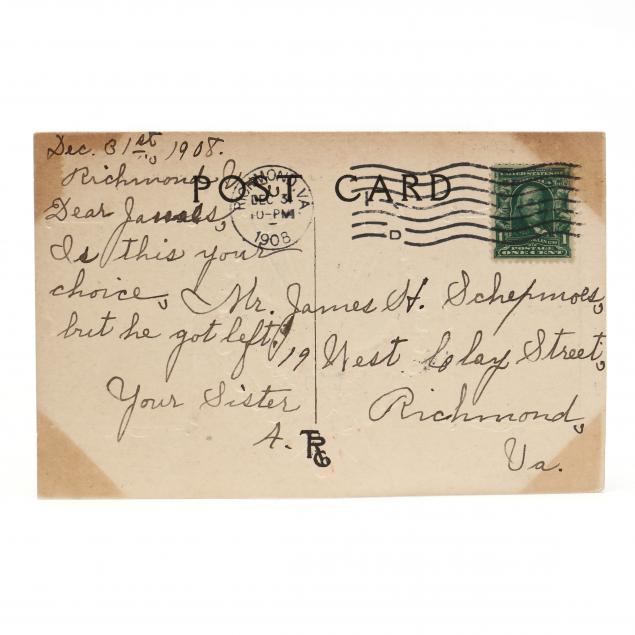 Dec. 31st, 1908.
Richmond
Dear James,
Is this your
choice,
but he got left?
Your Sister
A.
POST CARD
RICHMOND, VA.
DEC 31
10-PM
1908
D
UNITED STATES
POSTAGE
ONE CENT
1
Mr. James H. Schepmoes,
19 West Clay Street,
Richmond,
Va.